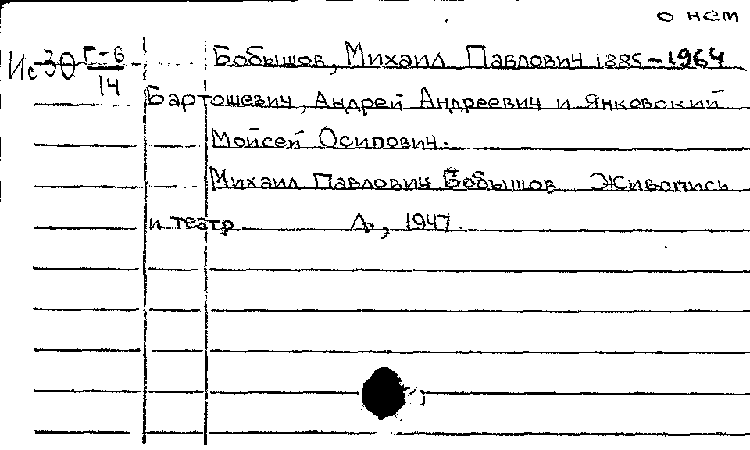 о нем
Ис30 Г-6/14 Бобышов, Михаил Павлович 1885-1964
Бартошевич, Андрей Андреевич и Янковский
Мойсей Осипович.
Михаил Павлович Бобышов Живопись
и театр Л., 1947.